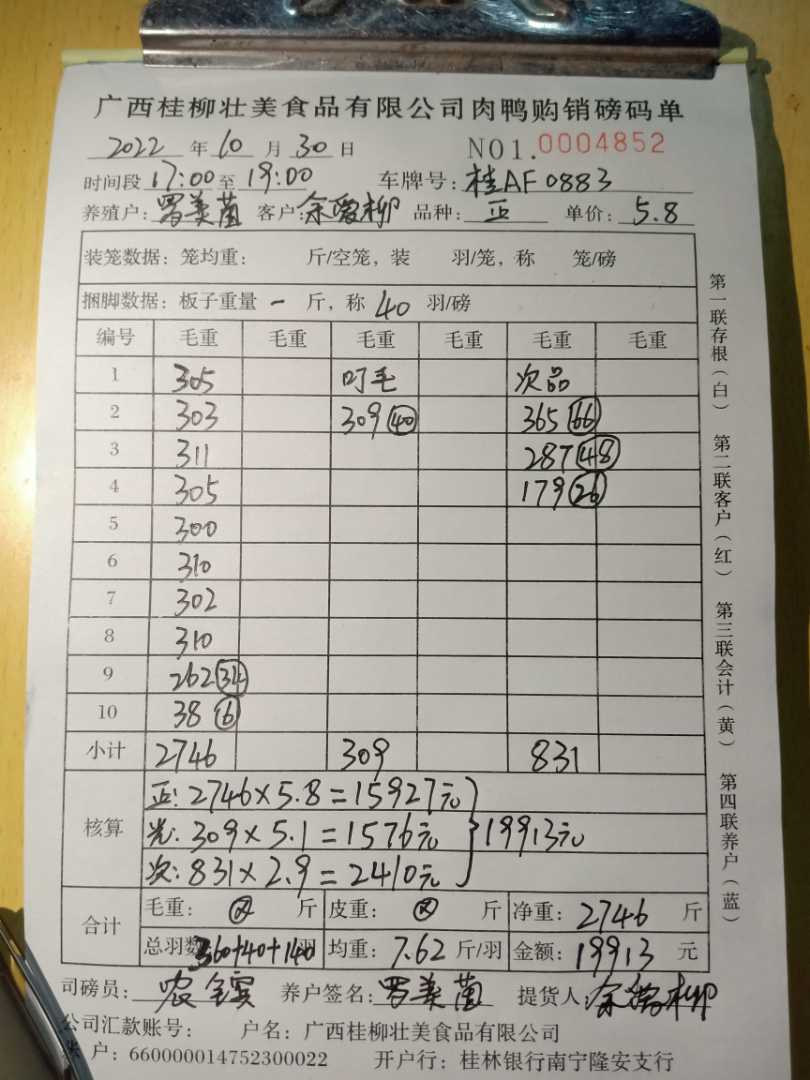 广西桂柳壮美食品有限公司肉鸭购销磅码单
2022 年 10 月 30 日 NO1.0004852
时间段 17:00 至 19:00 车牌号: 桂AF0883
养殖户: 罗美菌 客户: 余 柳 品种: 正 单价: 5.8
装笼数据: 笼均重: 斤/空笼, 装 羽/笼, 称 笼/磅
捆脚数据: 板子重量 一 斤, 称 40 羽/磅
编号 毛重 毛重 毛重 毛重 毛重 毛重
1 305 叮毛 次品
2 303 309 40 365 66
3 311 287 48
4 305 179 26
5 300
6 310
7 302
8 310
9 262 34
10 38 6
小计 2746 309 831
核算
正: 2746×5.8=15927元
光: 309×5.1=1576元 19913元
次: 831×2.9=2410元
合计
毛重: 斤 皮重: 斤 净重: 2746 斤
总羽数 360+40+140 羽 均重: 7.62 斤/羽 金额: 19913 元
司磅员: 农 养户签名: 罗美菌 提货人: 余 柳
公司汇款账号: 户名: 广西桂柳壮美食品有限公司
户: 660000014752300022 开户行: 桂林银行南宁隆安支行
第一联存根(白) 第二联客户(红) 第三联会计(黄) 第四联养户(蓝)